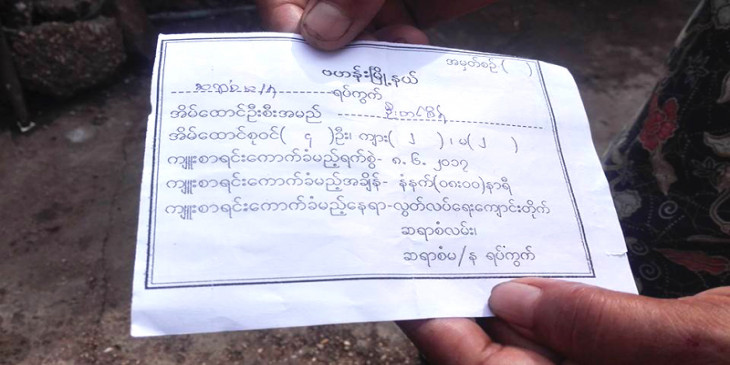 အမှတ်စဉ် ( )
ဗဟန်းမြို့နယ်
ဆရာစံမ/န ရပ်ကွက်
အိမ်ထောင်ဦးစီးအမည်
အိမ်ထောင်စုဝင်( ၄ )ဦး၊ ကျား( ၂ ) ၊ မ( ၂ )
ကျူးစာရင်းကောက်ခံမည့်ရက်စွဲ- ၈. ၆. ၂၀၁၇
ကျူးစာရင်းကောက်ခံမည့်အချိန်- နံနက်(၀၈း၀၀)နာရီ
ကျူးစာရင်းကောက်ခံမည့်နေရာ-လွတ်လပ်ရေးကျောင်းတိုက်
ဆရာစံလမ်း၊
ဆရာစံမ/န ရပ်ကွက်